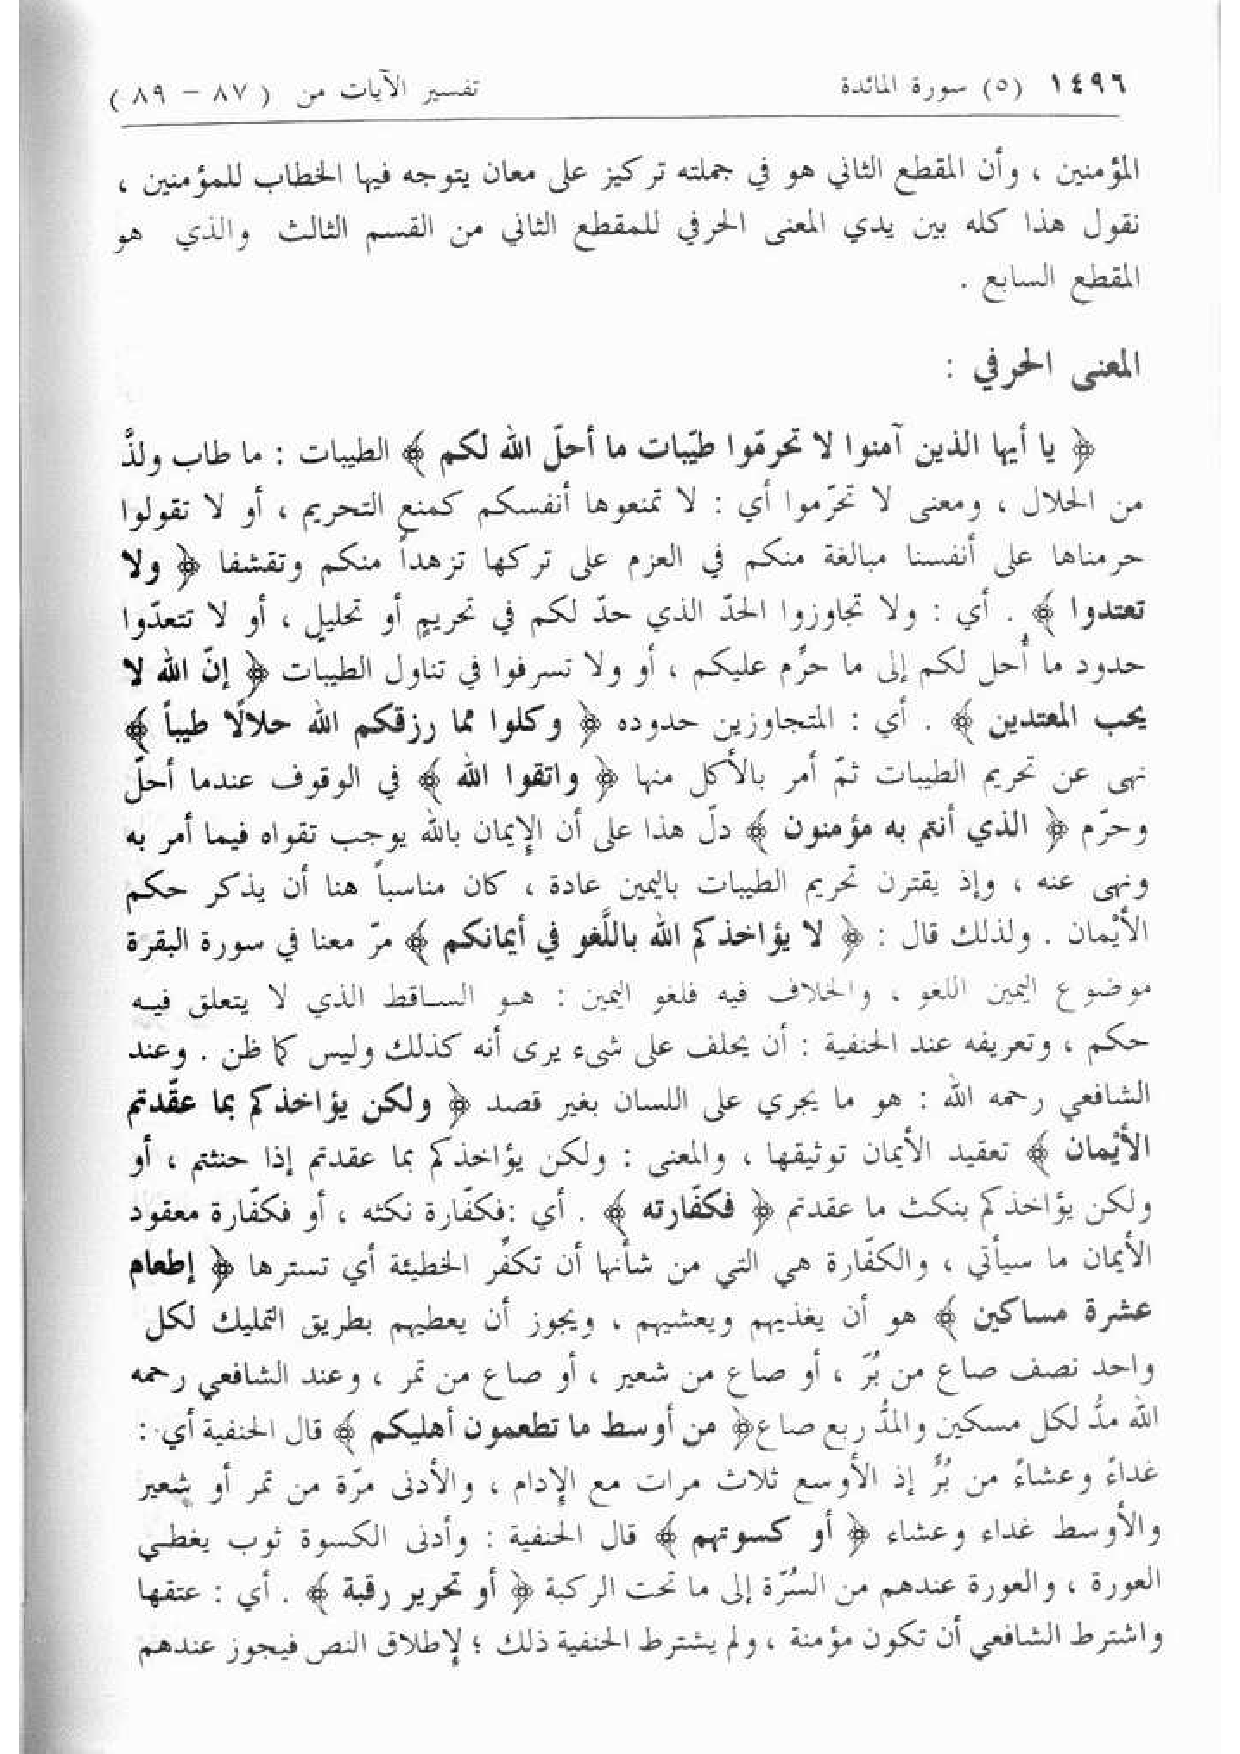 ١٤٩٦ (٥) سورة المائدة تفسير الآيات من ( ٨٧ – ٨٩ )
المؤمنين ، وأن المقطع الثاني هو في جملته تركيز على معان يتوجه فيها الخطاب للمؤمنين ،
نقول هذا كله بين يدي المعنى الحرفي للمقطع الثاني من القسم الثالث والذي هو
المقطع السابع .
المعنى الحرفي :
﴿ يا أيها الذين آمنوا لا تحرمّوا طيّبات ما أحلّ الله لكم ﴾ الطيبات : ما طاب ولذَّ
من الحلال ، ومعنى لا تحرّموا أي : لا تمنعوها أنفسكم كمنع التحريم ، أو لا تقولوا
حرمناها على أنفسنا مبالغة منكم في العزم على تركها تزهداً منكم وتقشفا ﴿ ولا
تعتدوا ﴾ . أي : ولا تجاوزوا الحدّ الذي حدّ لكم في تحريمٍ أو تحليلٍ ، أو لا تتعدّوا
حدود ما أُحل لكم إلى ما حرِّم عليكم ، أو ولا تسرفوا في تناول الطيبات ﴿ إنّ الله لا
يحب المعتدين ﴾ . أي : المتجاوزين حدوده ﴿ وكلوا مما رزقكم الله حلالًا طيباً ﴾
نهى عن تحريم الطيبات ثمّ أمر بالأكل منها ﴿ واتقوا الله ﴾ في الوقوف عندما أحلّ
وحرّم ﴿ الذي أنتم به مؤمنون ﴾ دلّ هذا على أن الإيمان بالله يوجب تقواه فيما أمر به
ونهى عنه ، وإذ يقترن تحريم الطيبات باليمين عادة ، كان مناسباً هنا أن يذكر حكم
الأيْمان . ولذلك قال : ﴿ لا يؤاخذكم الله باللَّغو في أيمانكم ﴾ مرّ معنا في سورة البقرة
موضوع اليمين اللغو ، والخلاف فيه فلغو اليمين : هـو الساقط الذي لا يتعلق فيـه
حكم ، وتعريفه عند الحنفية : أن يحلف على شيء يرى أنه كذلك وليس كما ظن . وعند
الشافعي رحمه الله : هو ما يجري على اللسان بغير قصد ﴿ ولكن يؤاخذكم بما عقّدتم
الأيْمان ﴾ تعقيد الأيمان توثيقها ، والمعنى : ولكن يؤاخذكم بما عقدتم إذا حنثتم ، أو
ولكن يؤاخذكم بنكث ما عقدتم ﴿ فكفّارته ﴾ . أي :فكفّارة نكثه ، أو فكفّارة معقود
الأيمان ما سيأتي ، والكفّارة هي التي من شأنها أن تكفِّر الخطيئة أي تسترها ﴿ إطعام
عشرة مساكين ﴾ هو أن يغذيهم ويعشيهم ، ويجوز أن يعطيهم بطريق التمليك لكل
واحد نصف صاع من بُرّ ، أو صاع من شعير ، أو صاع من تمر ، وعند الشافعي رحمه
الله مدُّ لكل مسكين والمدُّ ربع صاع﴿ من أوسط ما تطعمون أهليكم ﴾ قال الحنفية أي :
غداءً وعشاءً من بُرٍّ إذ الأوسع ثلاث مرات مع الإدام ، والأدنى مرّة من تمر أو شعير
والأوسط غداء وعشاء ﴿ أو كسوتهم ﴾ قال الحنفية : وأدنى الكسوة ثوب يغطـي
العورة ، والعورة عندهم من السُرّة إلى ما تحت الركبة ﴿ أو تحرير رقبة ﴾ . أي : عتقها
واشترط الشافعي أن تكون مؤمنة ، ولم يشترط الحنفية ذلك ؛ لإطلاق النص فيجوز عندهم